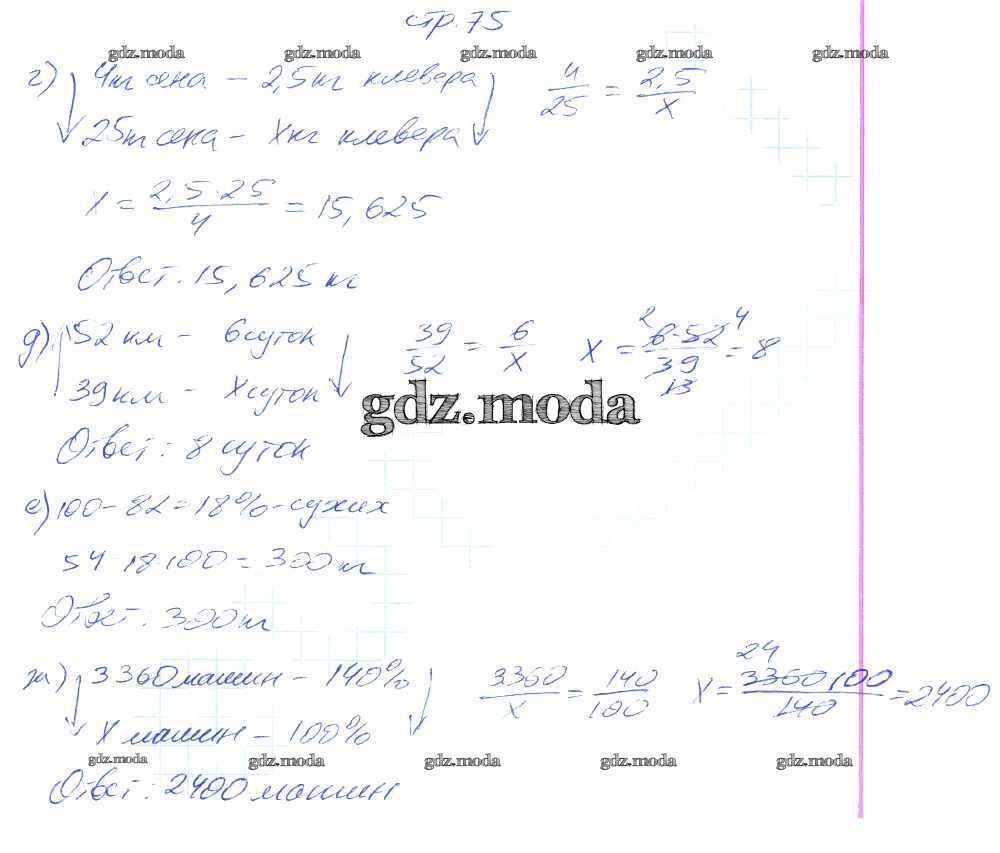 стр. 75
gdz.moda gdz.moda gdz.moda gdz.moda gdz.moda
г) 4кг сена – 2,5кг клевера 4/25 = 2,5/х
25кг сена – Хкг клевера
Х = 2,5·25/4 = 15,625
Ответ. 15,625 кг
д) 52 км – 6 суток 39/52 = 6/х Х = 6·52/39 = 8 2 4 13
39 км – Х суток
gdz.moda
Ответ: 8 суток
е) 100 – 82 = 18% – сухих
54·18·100 = 300 кг
Ответ: 300 кг
ж) 3360 машин – 140% 3360/х = 140/100 Х = 3360·100/140 = 2400 24
Х машин – 100%
gdz.moda gdz.moda gdz.moda gdz.moda gdz.moda
Ответ: 2400 машин